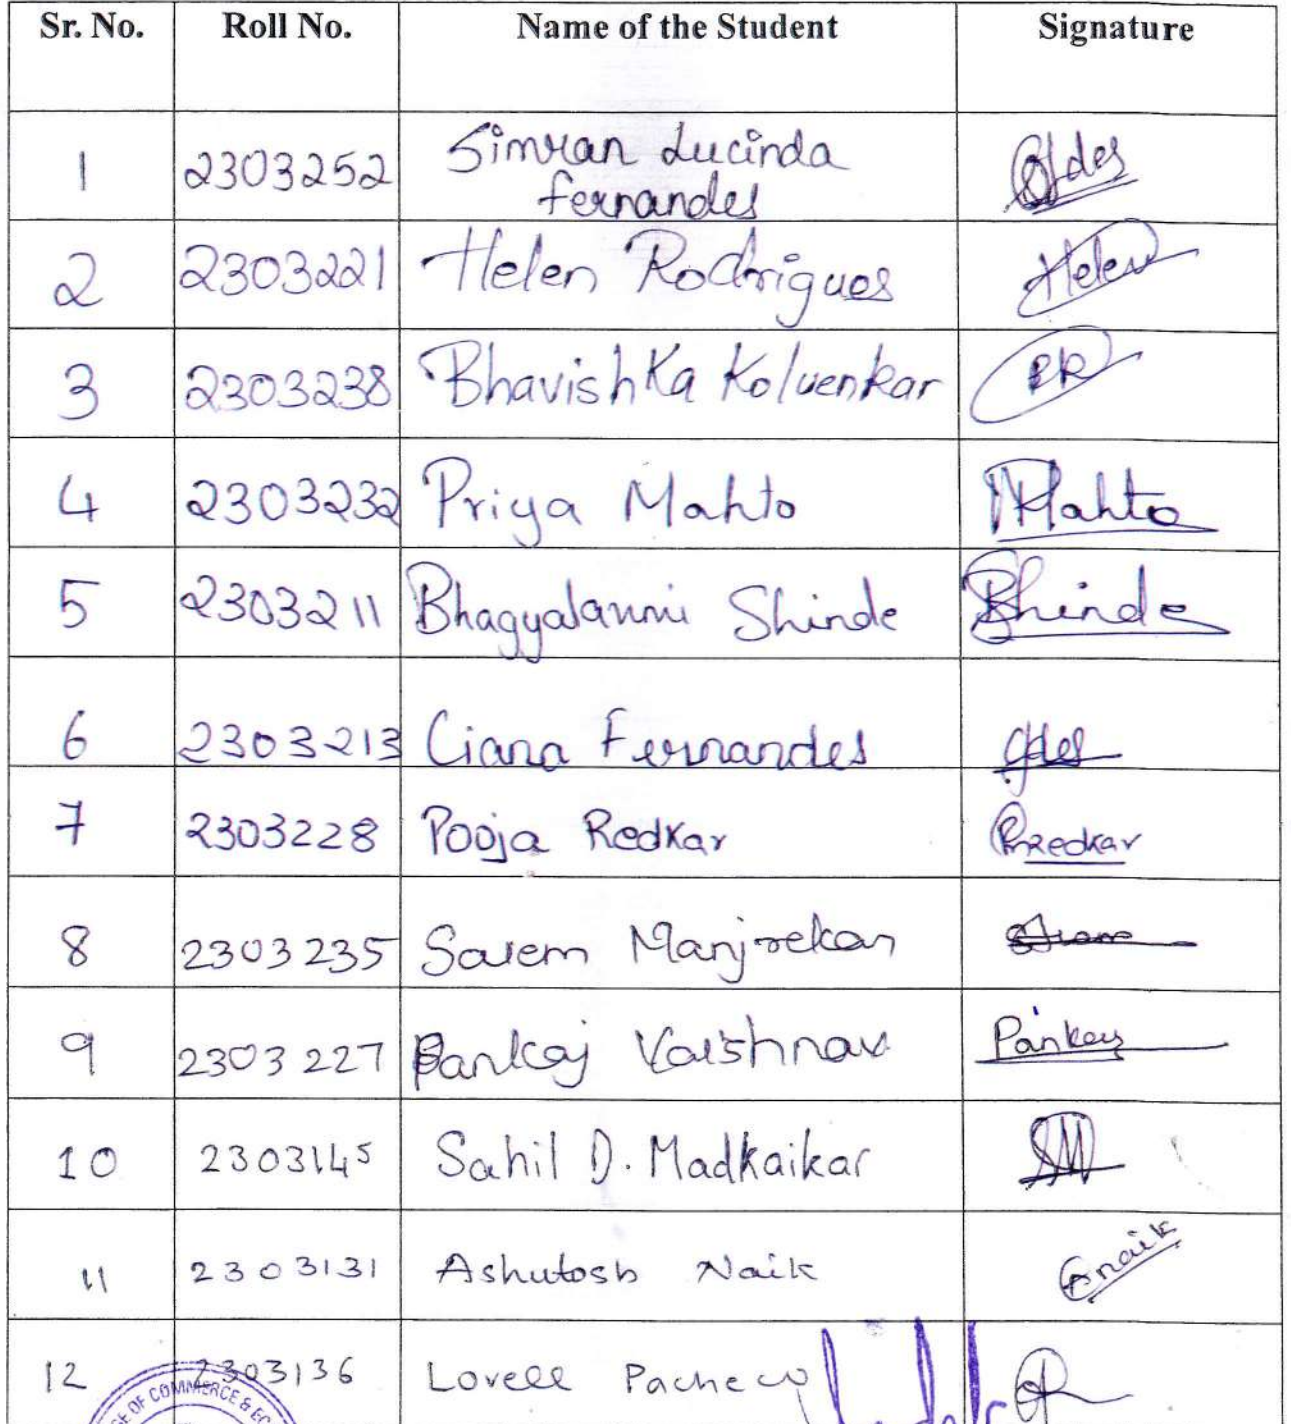 Sr. No. Roll No. Name of the Student Signature
1 2303252 Simran Lucinda
Fernandes
2 2303221 Helen Rodrigues Helen
3 2303238 Bhavishka Kolvenkar
4 2303232 Priya Mahto Mahto
5 2303211 Bhagyalaxmi Shinde Shinde
6 2303213 Ciana Fernandes
7 2303228 Pooja Redkar PRedkar
8 2303235 Manjrekar
9 2303227 Pankaj Vaishnav Pankaj
10 2303145 Sahil D. Madkaikar SM
11 2303131 Ashutosh Naik naik
12 2303136 Lovell Pacheco
OF COMMERCE &